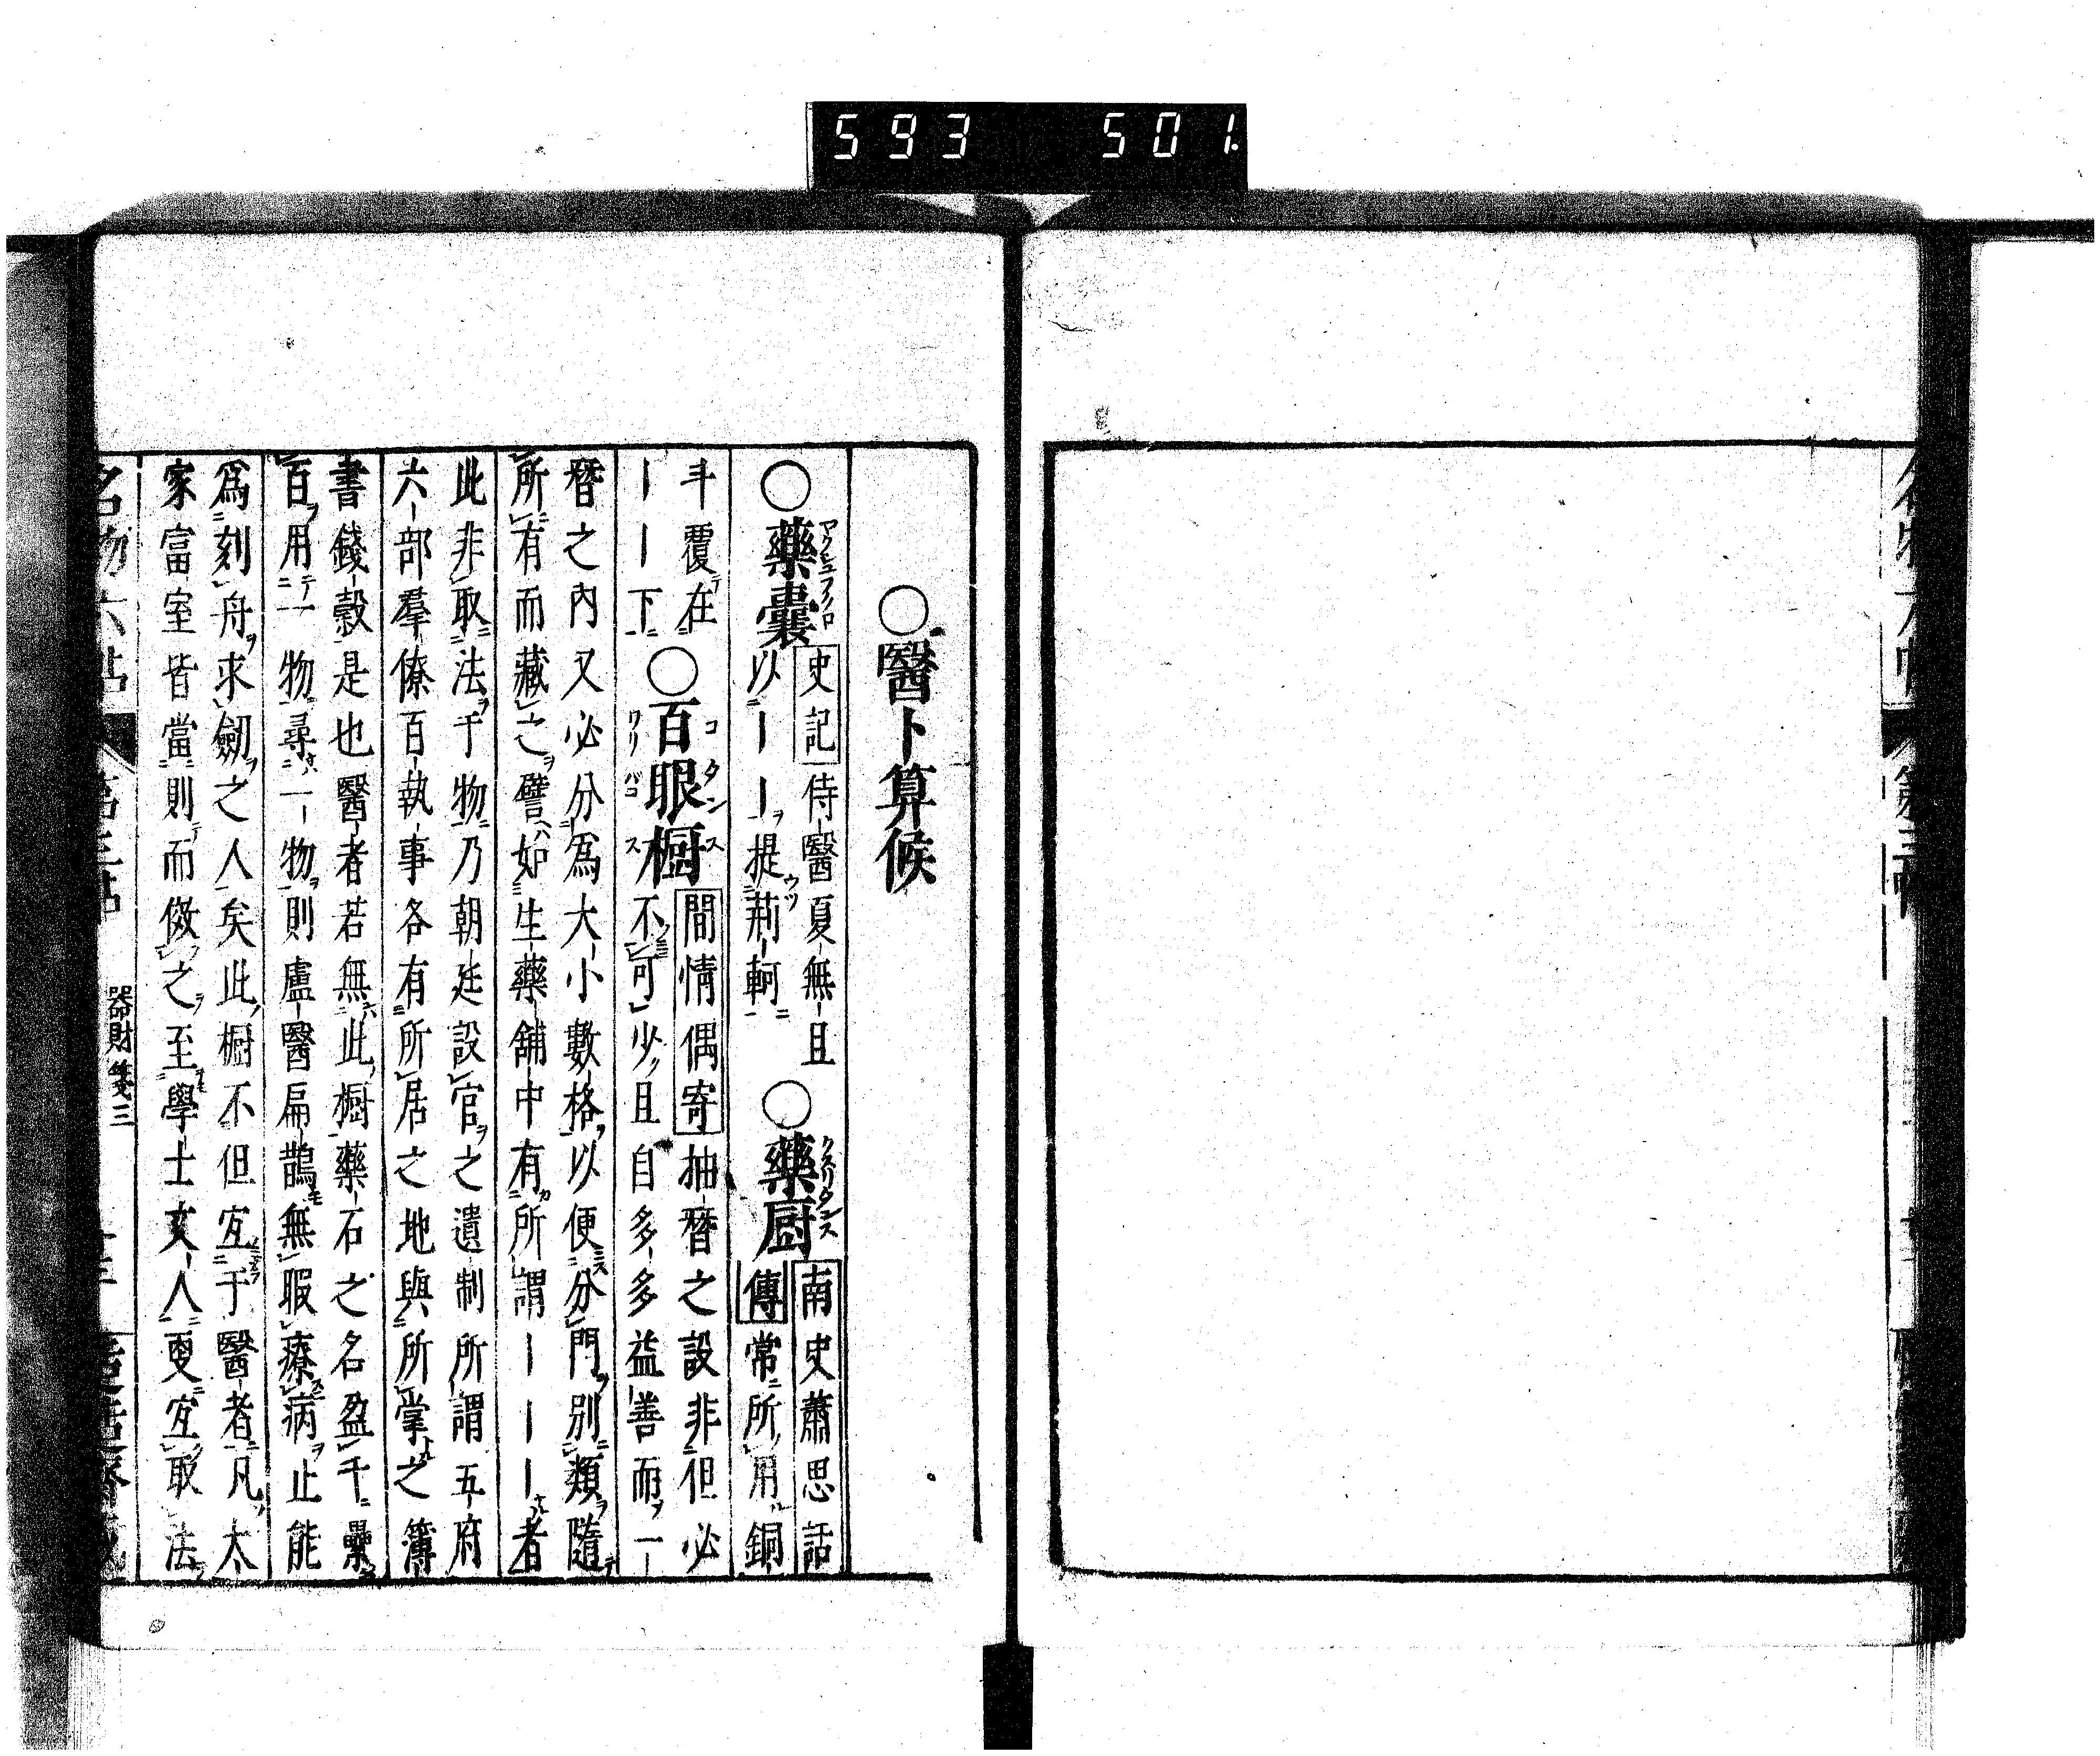 593 501
○醫卜算候
○藥嚢 史記 侍醫夏無且
以ーー提荊軻
○藥厨 クスリタンス 南史蕭思話
傳 常所用銅
斗覆在
ーー下
○百眼橱 コタンス 間情偶寄 抽替之設非但必
不可少且自多多益善而一
替之内又必分爲大小數格以便分門別類隨
所有而藏之譬如生藥舖中有所謂ーーー者
此非取法于物乃朝廷設官之遺制所謂五府
六部羣僚百執事各有所居之地與所掌之簿
書錢穀是也醫者若無此橱藥石之名盈千纍
百用一物尋一物則盧醫扁鵲無暇療病止能
爲刻舟求劔之人矣此橱不但宜于醫者凡太
家富室皆當則而倣之至學士女人更宜取法
名物六帖 第三帖 器財箋三